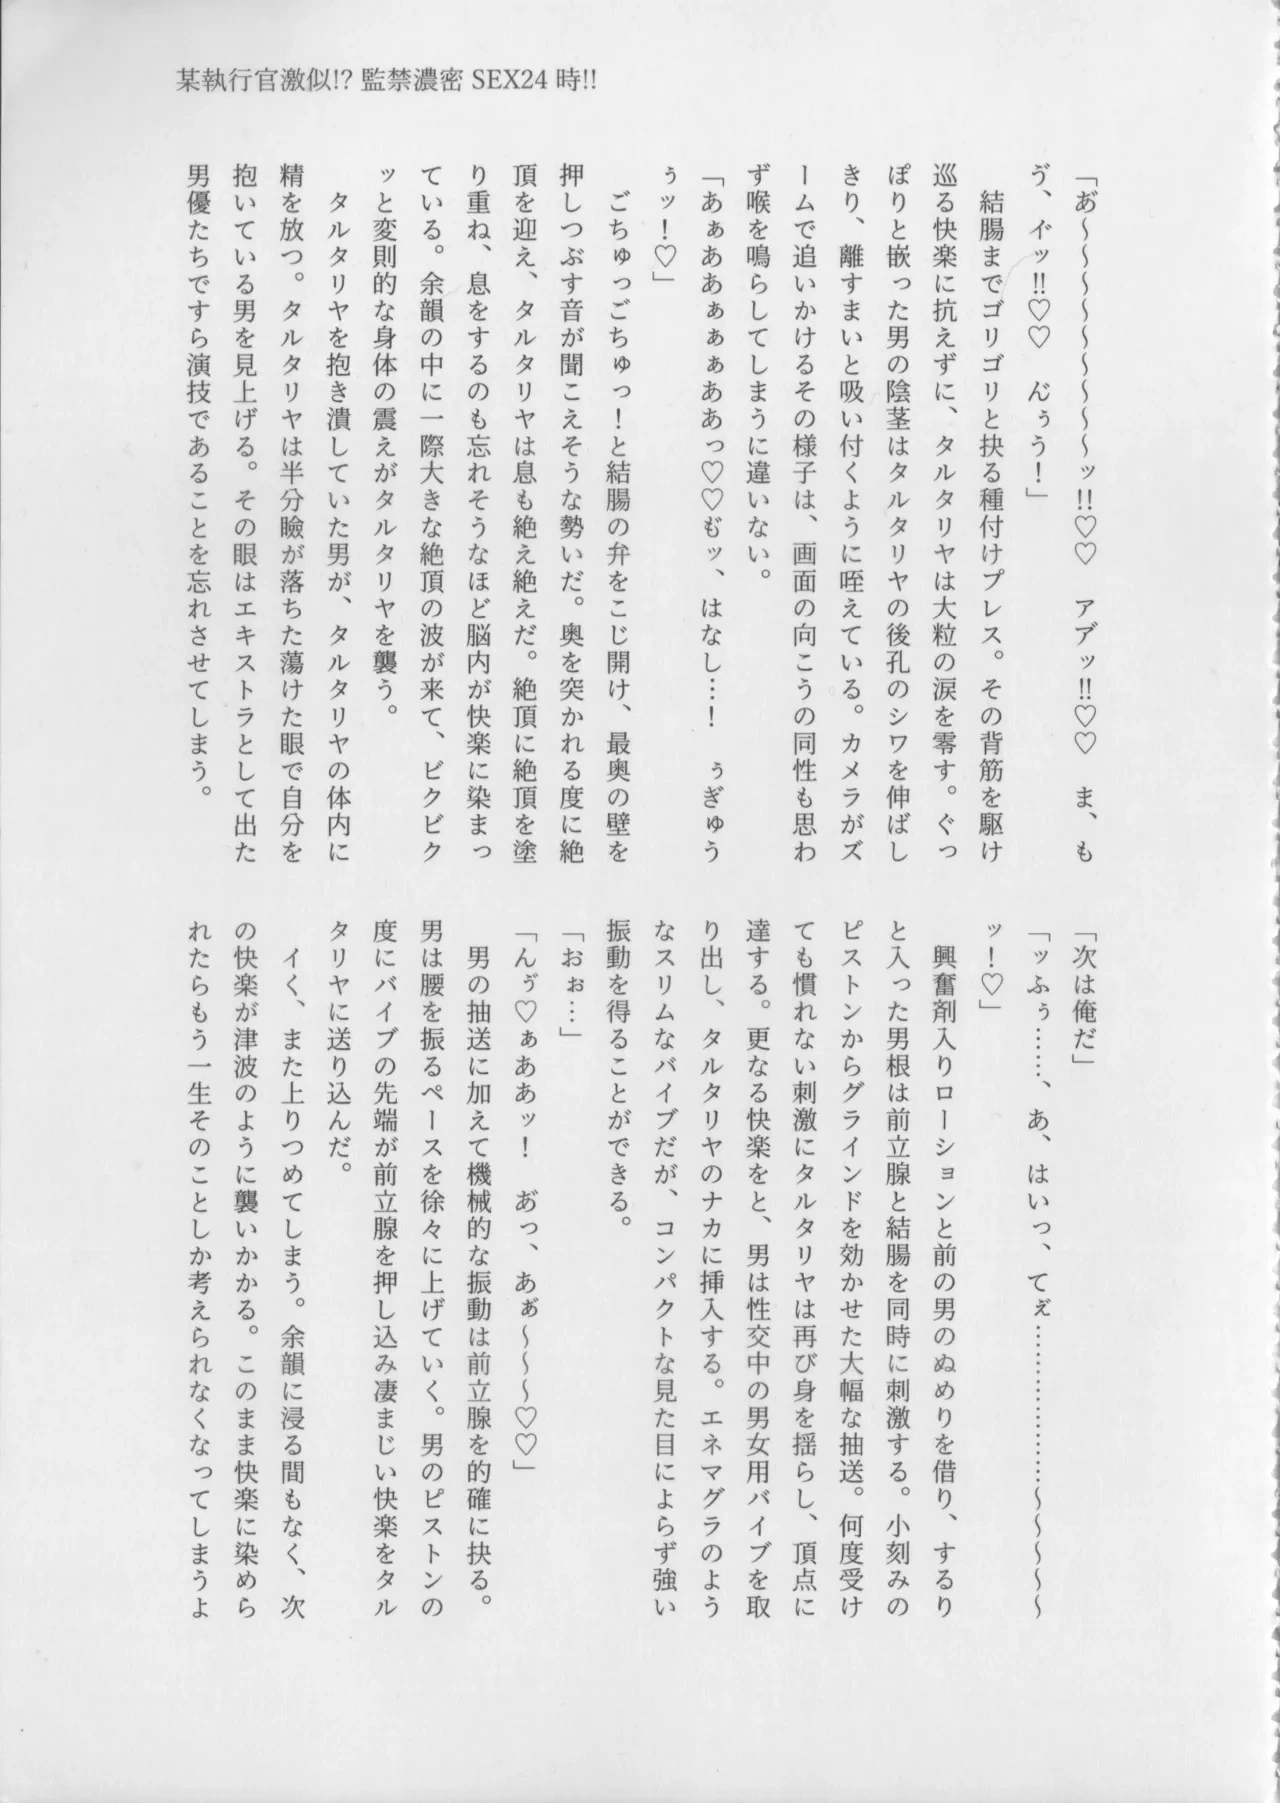 某執行官激似!? 監禁濃密 SEX24 時!!
「あ゛〜〜〜〜〜〜〜〜ッ!!♡♡　アア゛ッ!!♡♡　ま、も
ゔ、イ゛ッ!!♡♡　ん゛ぅう！」
　結腸までゴリゴリと抉る種付けプレス。その背筋を駆け
巡る快楽に抗えずに、タルタリヤは大粒の涙を零す。ぐっ
ぽりと嵌った男の陰茎はタルタリヤの後孔のシワを伸ばし
きり、離すまいと吸い付くように咥えている。カメラがズ
ームで追いかけるその様子は、画面の向こうの同性も思わ
ず喉を鳴らしてしまうに違いない。
「あぁああぁぁぁああっ♡♡も゛ッ、はなし…！　ぅぎゅう
ぅッ！♡」
　ごちゅっごちゅっ！と結腸の弁をこじ開け、最奥の壁を
押しつぶす音が聞こえそうな勢いだ。奥を突かれる度に絶
頂を迎え、タルタリヤは息も絶え絶えだ。絶頂に絶頂を塗
り重ね、息をするのも忘れそうなほど脳内が快楽に染まっ
ている。余韻の中に一際大きな絶頂の波が来て、ビクビク
ッと変則的な身体の震えがタルタリヤを襲う。
　タルタリヤを抱き潰していた男が、タルタリヤの体内に
精を放つ。タルタリヤは半分瞼が落ちた蕩けた眼で自分を
抱いている男を見上げる。その眼はエキストラとして出た
男優たちですら演技であることを忘れさせてしまう。
「次は俺だ」
「ッふぅ……、あ、はいっ、てぇ………………〜〜〜〜〜
ッ！♡」
　興奮剤入りローションと前の男のぬめりを借り、するり
と入った男根は前立腺と結腸を同時に刺激する。小刻みの
ピストンからグラインドを効かせた大幅な抽送。何度受け
ても慣れない刺激にタルタリヤは再び身を揺らし、頂点に
達する。更なる快楽をと、男は性交中の男女用バイブを取
り出し、タルタリヤのナカに挿入する。エネマグラのよう
なスリムなバイブだが、コンパクトな見た目によらず強い
振動を得ることができる。
「おぉ…」
「んぅ゛♡ぁああッ！　あ゛っ、あぁ゛〜〜〜♡♡」
　男の抽送に加えて機械的な振動は前立腺を的確に抉る。
男は腰を振るペースを徐々に上げていく。男のピストンの
度にバイブの先端が前立腺を押し込み凄まじい快楽をタル
タリヤに送り込んだ。
　イく、また上りつめてしまう。余韻に浸る間もなく、次
の快楽が津波のように襲いかかる。このまま快楽に染めら
れたらもう一生そのことしか考えられなくなってしまうよ